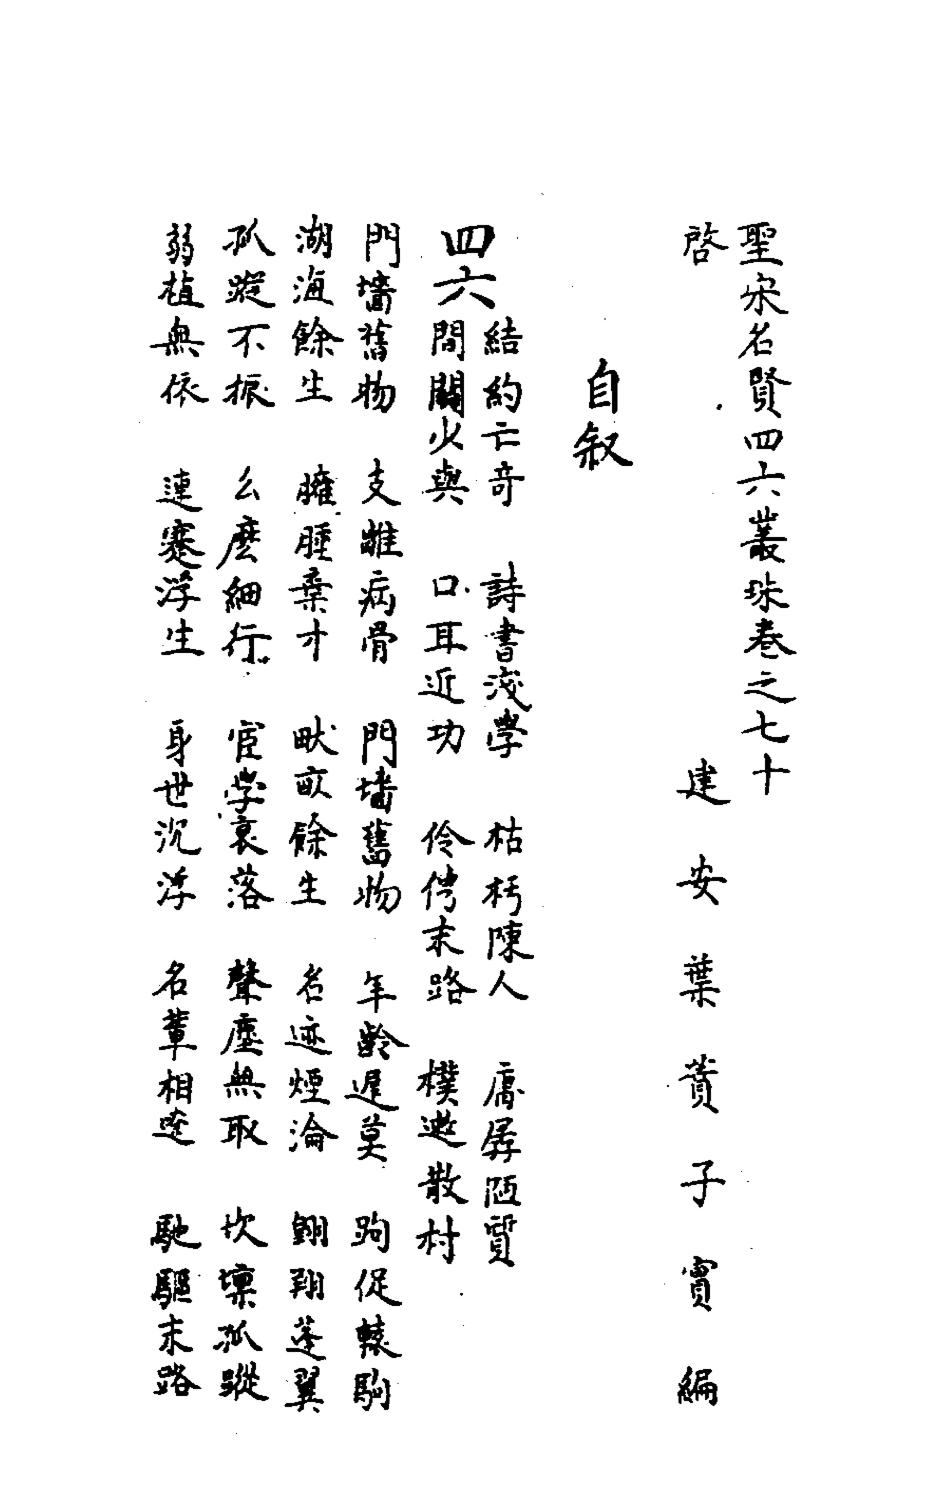 聖宋名賢四六叢珠卷之七十
建安葉蕡子實編
啓
自叙
四六
結約亡竒　詩書淺學　枯朽陳人　孱陋質
間關火與　口耳近功　伶俜末路　樸遫散材
門墻舊物　支離病骨　門墻舊物　年齡遲莫　跼促轅駒
湖海餘生　臃腫棄才　畎畝餘生　名迹煙淪　翺翔蓬翼
孤蹤不振　么麽細行　宦學衰落　聲塵無取　坎壈孤蹤
弱植無依　連蹇浮生　身世沉浮　名輩相遼　馳驅末路